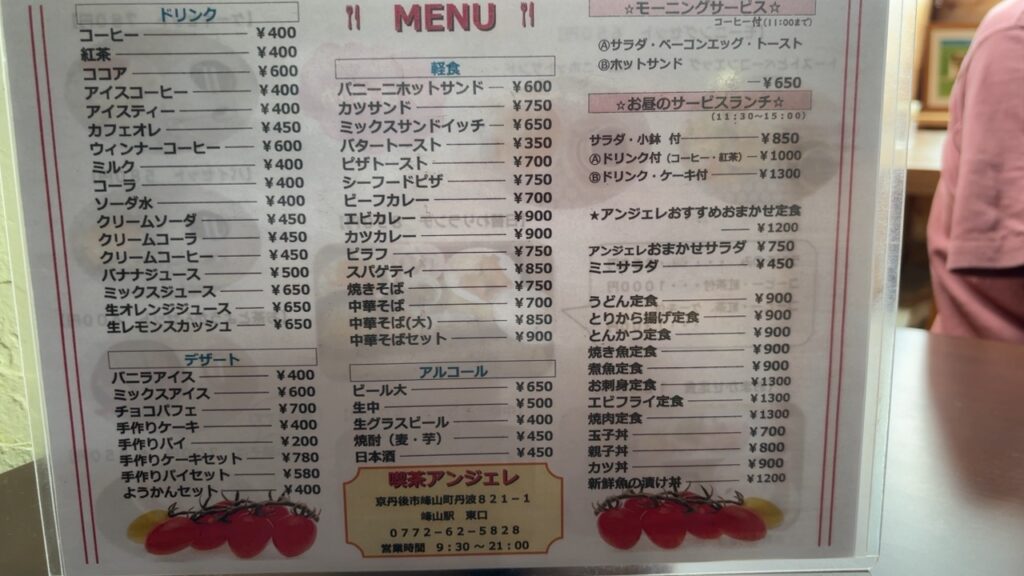 ドリンク
コーヒー ¥400
紅茶 ¥400
ココア ¥600
アイスコーヒー ¥400
アイスティー ¥400
カフェオレ ¥450
ウィンナーコーヒー ¥600
ミルク ¥400
コーラ ¥400
ソーダ水 ¥400
クリームソーダ ¥450
クリームコーラ ¥450
クリームコーヒー ¥450
バナナジュース ¥500
ミックスジュース ¥650
生オレンジジュース ¥650
生レモンスカッシュ ¥650
デザート
バニラアイス ¥400
ミックスアイス ¥600
チョコパフェ ¥700
手作りケーキ ¥400
手作りパイ ¥200
手作りケーキセット ¥780
手作りパイセット ¥580
ようかんセット ¥400
MENU
軽食
パニーニホットサンド ¥600
カツサンド ¥750
ミックスサンドイッチ ¥650
バタートースト ¥350
ピザトースト ¥700
シーフードピザ ¥750
ビーフカレー ¥700
エビカレー ¥900
カツカレー ¥900
ピラフ ¥750
スパゲティ ¥850
焼きそば ¥750
中華そば ¥700
中華そば(大) ¥850
中華そばセット ¥900
アルコール
ビール大 ¥650
生中 ¥500
生グラスビール ¥400
焼酎（麦・芋） ¥450
日本酒 ¥450
喫茶アンジェレ
京丹後市峰山町丹波821-1
峰山駅 東口
0772-62-5828
営業時間 9:30～21:00
☆モーニングサービス☆
コーヒー付(11:00まで)
Ⓐサラダ・ベーコンエッグ・トースト
Ⓑホットサンド
¥650
☆お昼のサービスランチ☆
(11:30～15:00)
サラダ・小鉢 付 ¥850
Ⓐドリンク付（コーヒー・紅茶） ¥1000
Ⓑドリンク・ケーキ付 ¥1300
★アンジェレおすすめおまかせ定食
¥1200
アンジェレおまかせサラダ ¥750
ミニサラダ ¥450
うどん定食 ¥900
とりから揚げ定食 ¥900
とんかつ定食 ¥900
焼き魚定食 ¥900
煮魚定食 ¥900
お刺身定食 ¥1300
エビフライ定食 ¥1300
焼肉定食 ¥1300
玉子丼 ¥700
親子丼 ¥800
カツ丼 ¥900
新鮮魚の漬け丼 ¥1200